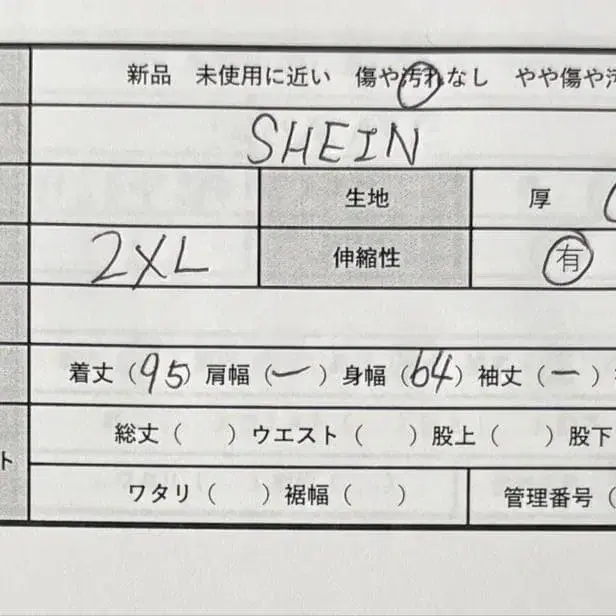 新品 未使用に近い 傷や汚れなし やや傷や汚
SHEIN
生地 厚
2XL 伸縮性 有
着丈（95）肩幅（ー）身幅（64）袖丈（ー）
総丈（ ）ウエスト（ ）股上（ ）股下
ト
ワタリ（ ）裾幅（ ） 管理番号（